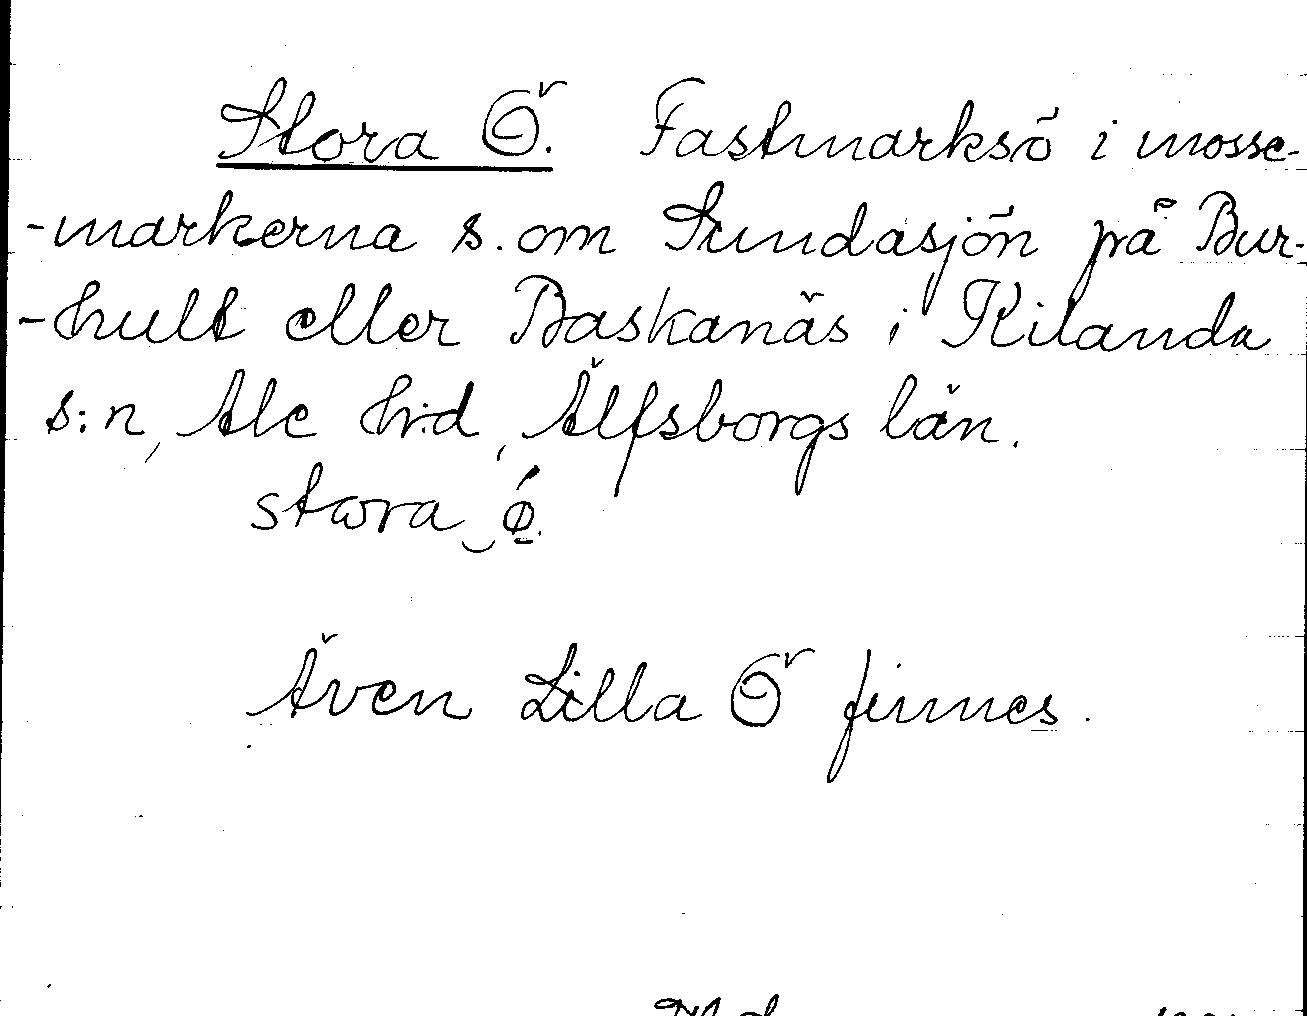 Stora Ö. Fastmarksö i mosse-
-markerna s. om Sundasjön på Bur-
-hult eller Baskanäs i Kilanda
s:n, Ale h:d, Älfsborgs län.
stωra‿ǿ.
Även Lilla Ö finnes.